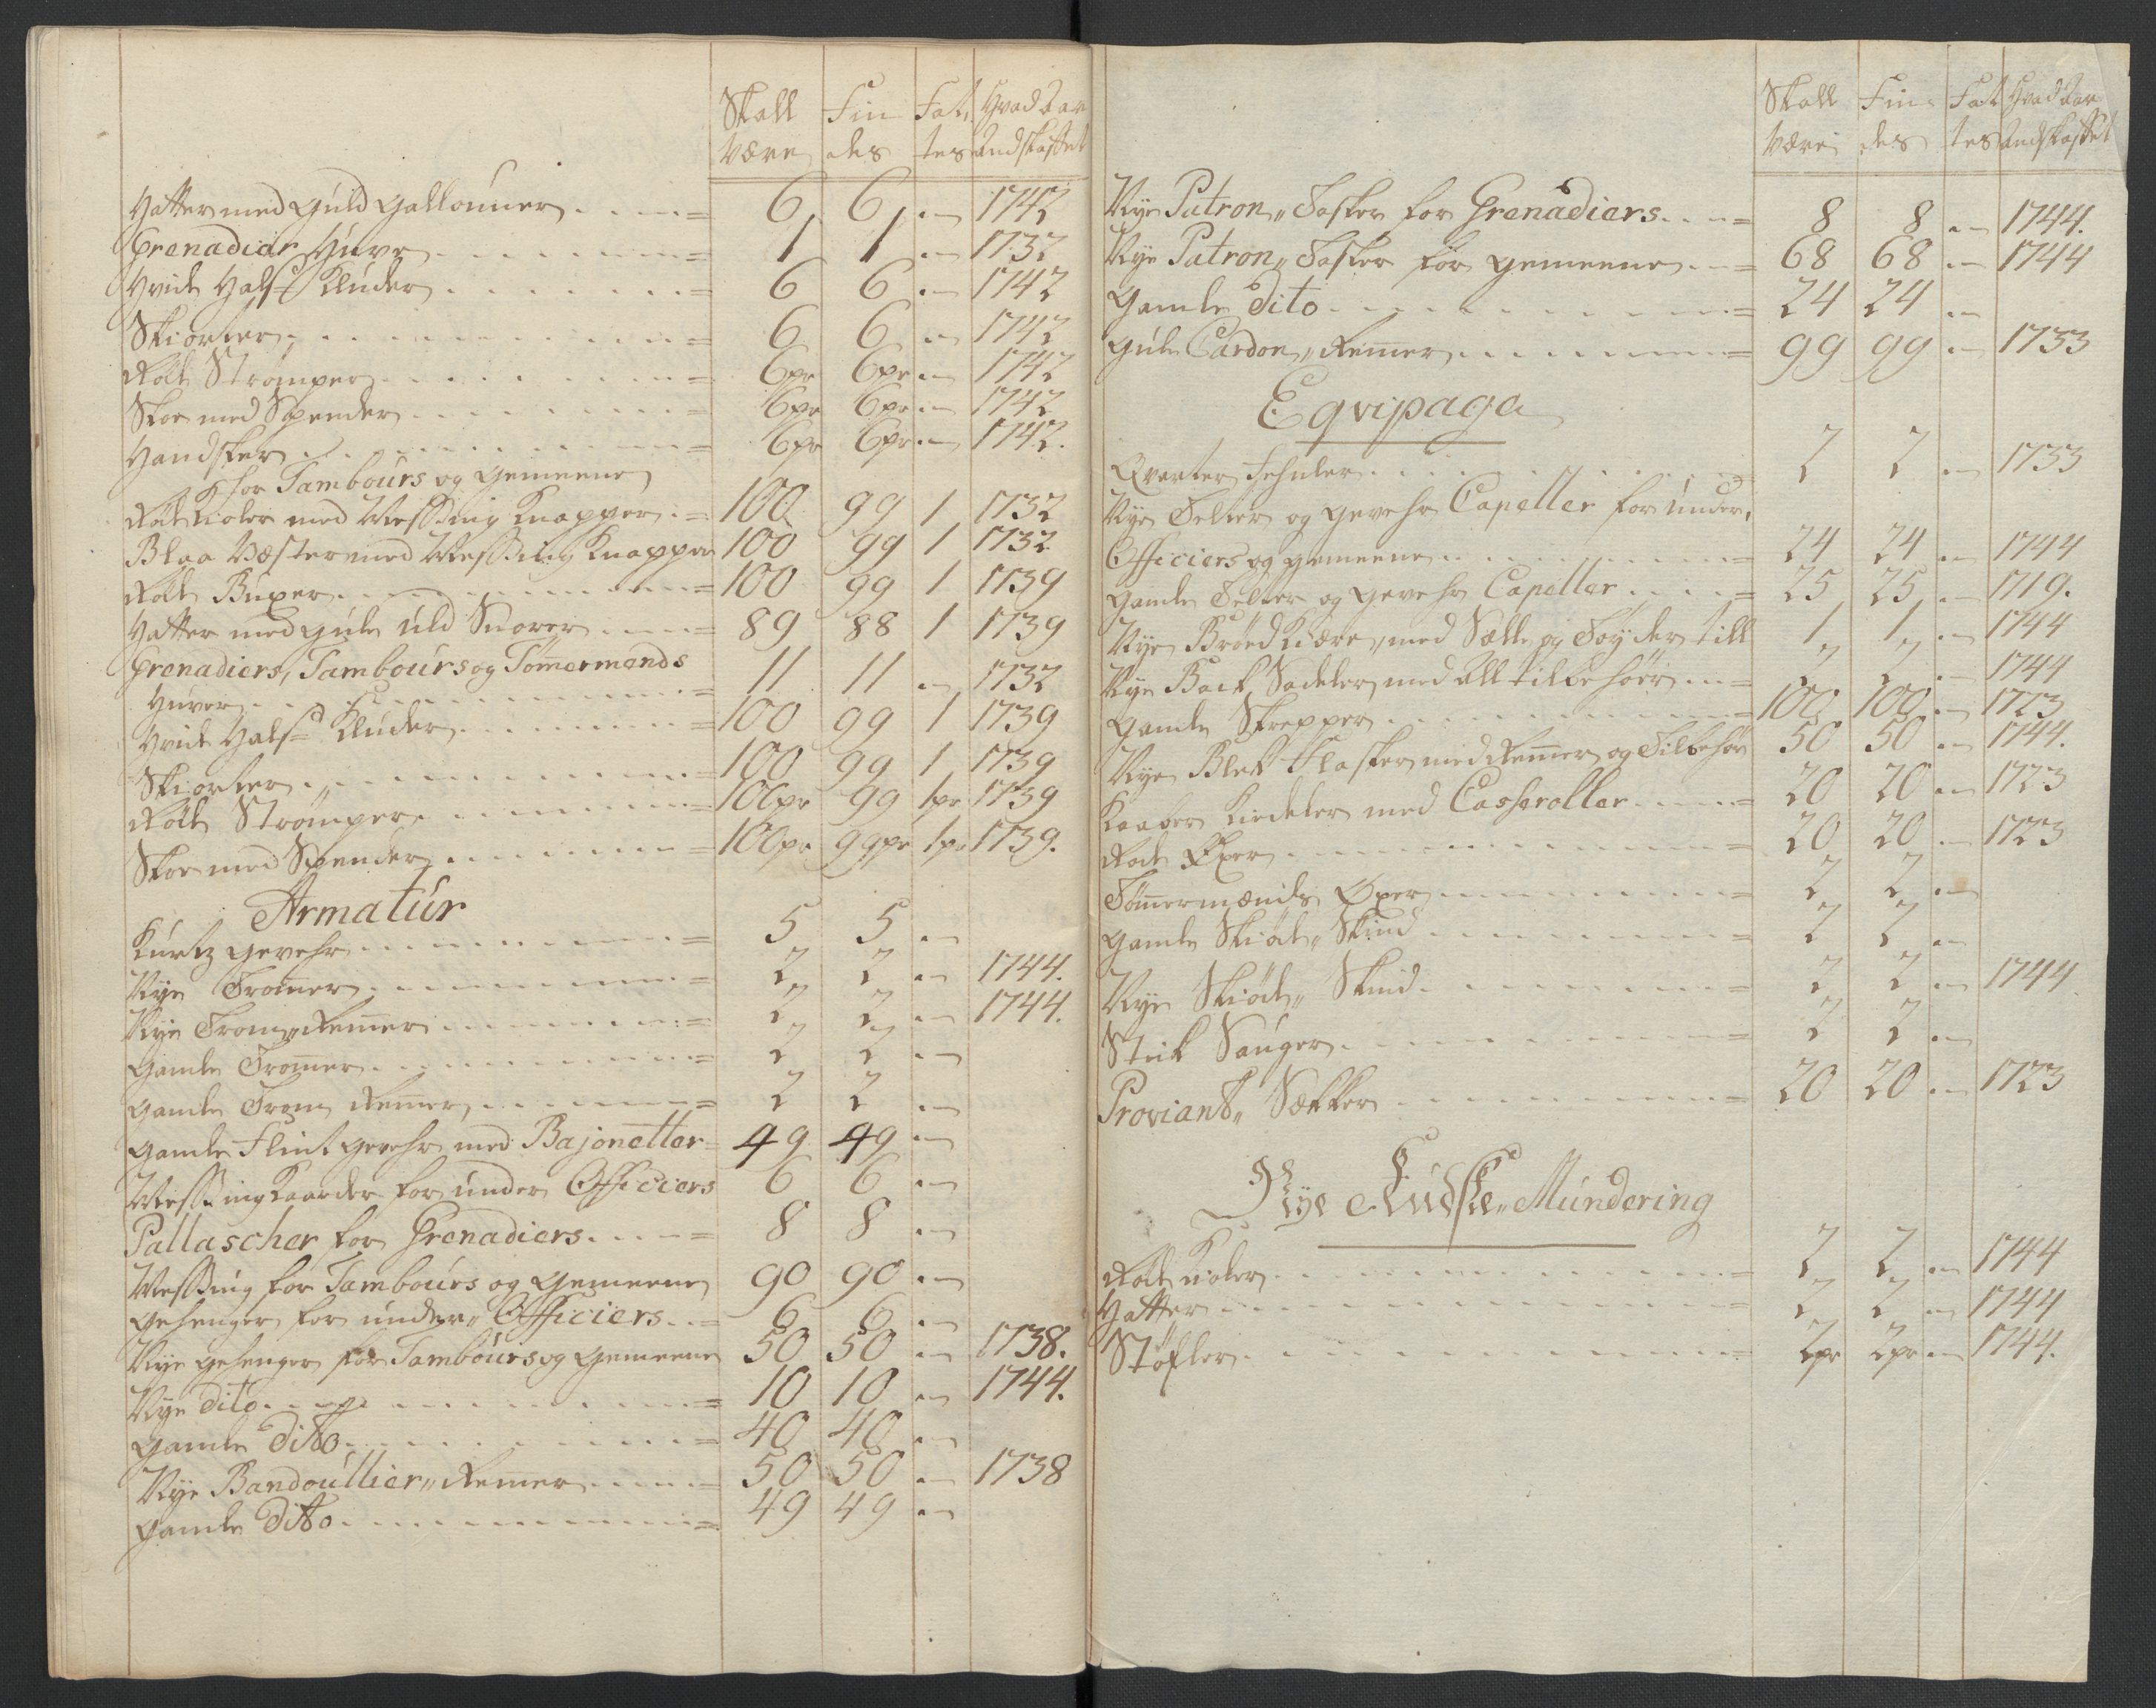 Skall Fin Fat, Hvad Aar
være des tes Andskaffet
Hatter med Guld Gallouner 6 6 1742
Grenadier Huve 1 1 1732
Hvide Hals Kluder 6 6 1742
Skiorter 6 6 1742
Röde Strömper 6pr 6pr 1742
Skoe med Spender 6pr 6pr 1742
Handsker 6pr 6pr 1742.
for Tambours og Gemeene
Röde Kioler med Messing Knapper 100 99 1 1732
Blaa Væster med Messing Knapper 100 99 1 1732
Röde Buxer 100 99 1 1739
Hatter med Gule uld Snorer 89 88 1 1739
Grenadiers, Tambours og Tömermends
Huver 11 11 1732
Hvide Hals Kluder 100 99 1 1739
Skiorter 100 99 1 1739
Röde Strömper 100pr 99 1pr 1739
Skoe med Spender 100pr 99pr 1pr 1739.
Armatur
Kurtz Gevehr 5 5
Nye Tromer 2 2 1744.
Nye Trom Remer 2 2 1744.
Gamle Tromer 2 2
Gamle Trom Remer 2 2
Gamle Flint Gevehr med Bajonetter 49 49
Messing Kaarder for under Officiers 6 6
Pallascher for Grenadiers 8 8
Messing for Tambours og Gemeene 90 90
Gehenger for under Officiers 6 6
Nye Gehenger for Tambours og Gemeene 50 50 1738.
Nye dito 10 10 1744.
Gamle Ditto 40 40
Nye Bandoullier Remer 50 50 1738
Gamle Ditto 49 49
Skall Fin Fat Hvad Aar
være des tes Andskaffet
Nye Patron Tasker for Grenadiers 8 8 1744.
Nye Patron Tasker for Gemeene 68 68 1744
Gamle Dito 24 24
Gule Cardon Remer 99 99 1733
Eqvipage
Qvarter Fehnler 2 2 1733
Nye Telter og Gevehr Capeller for under,
Officiers og Gemeene 24 24 1744
Gamle Telter og Gevehr Capeller 25 25 1719.
Nye Bröd Kiære med Sælle og Töyder till 1 1 1744
Nye Back Sadeler med all tilbehöer 2 2 1744
Gamle Skrepper 100 100 1723
Nye Blek Flasker med Remer og Tilbehör 50 50 1744.
Kaaber Kiedeler med Casseroller 20 20 1723
Röde Øxer 20 20 1723
Tömermænds Øxer 2 2
Gamle Skiöd Skind 2 2
Nye Skiöd Skind 2 2 1744
Stik Sauger 2 2
Proviant Sækker 20 20 1723
Nye Kudske Mundering
Röde Kioler 2 2 1744
Hatter 2 2 1744
Støfler 2pr 2pr 1744.